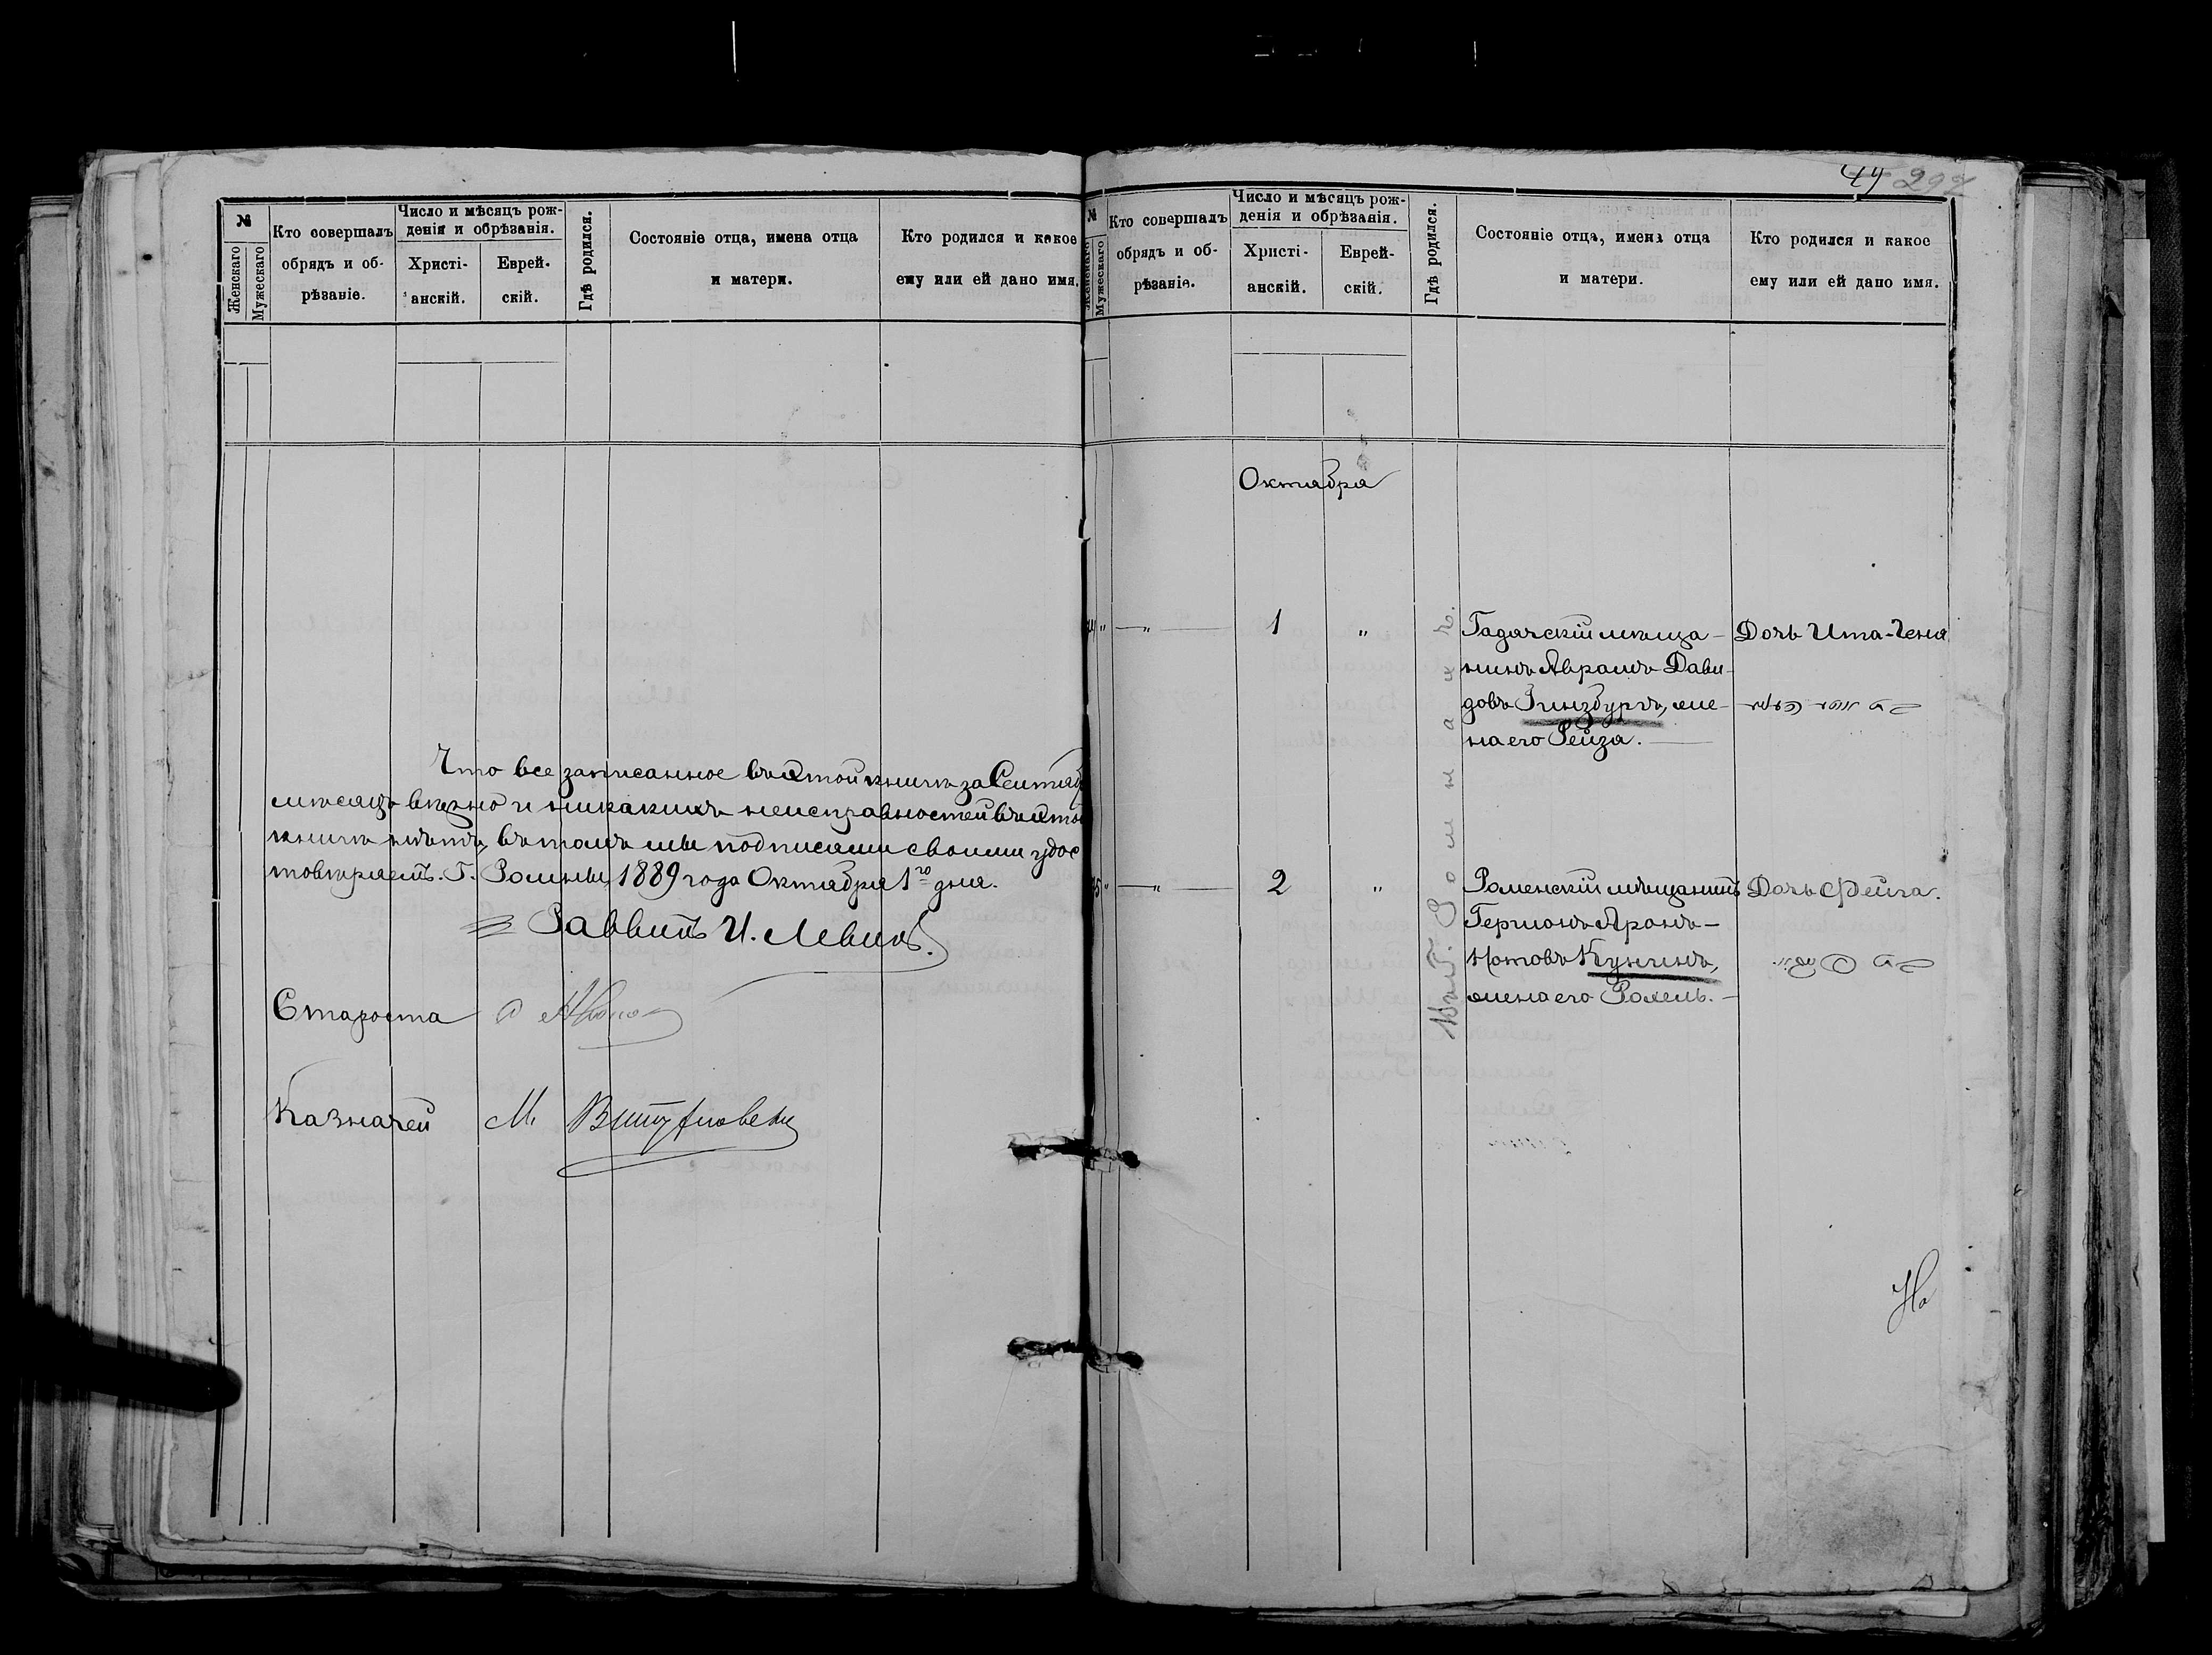 №
Женскаго
Мужескаго
Кто совершалъ
обрядъ и об-
рѣзаніе.
Число и мѣсяцъ рож-
денія и обрѣзанія.
Христі-
анскій.
Еврей-
скій.
Гдѣ родился.
Состояніе отца, имена отца
и матери.
Кто родился и какое
ему или ей дано имя.
Что все записанное въ этой книгѣ за Сентяб
мѣсяцъ вѣрно и никакихъ неисправностей въ это
книгѣ нѣтъ, въ томъ мы подписами своими удос
товѣряемъ. Г. Ромны, 1889 года Октября 1го дня.
Раввинъ И. Левинъ.
Староста
Казначей М.
49 297
№
Женскаго
Мужескаго
Кто совершалъ
обрядъ и об-
рѣзаніе.
Число и мѣсяцъ рож-
денія и обрѣзанія.
Христі-
анскій.
Еврей-
скій.
Гдѣ родился.
Состояніе отца, имена отца
и матери.
Кто родился и какое
ему или ей дано имя.
Октября
" — " — 1 "
Гадячскій мѣща-
нинъ Абрамъ Дави-
довъ Гинзбургъ, же-
на его Рейза.
Дочь Ита-Геня
Въ Г. Ромнахъ.
" — " — 2 "
Роменскій мѣщанинъ
Гершонъ Аронъ-
Нотовъ Кунинъ,
жена его Рохель.
Дочь Фейга.
На